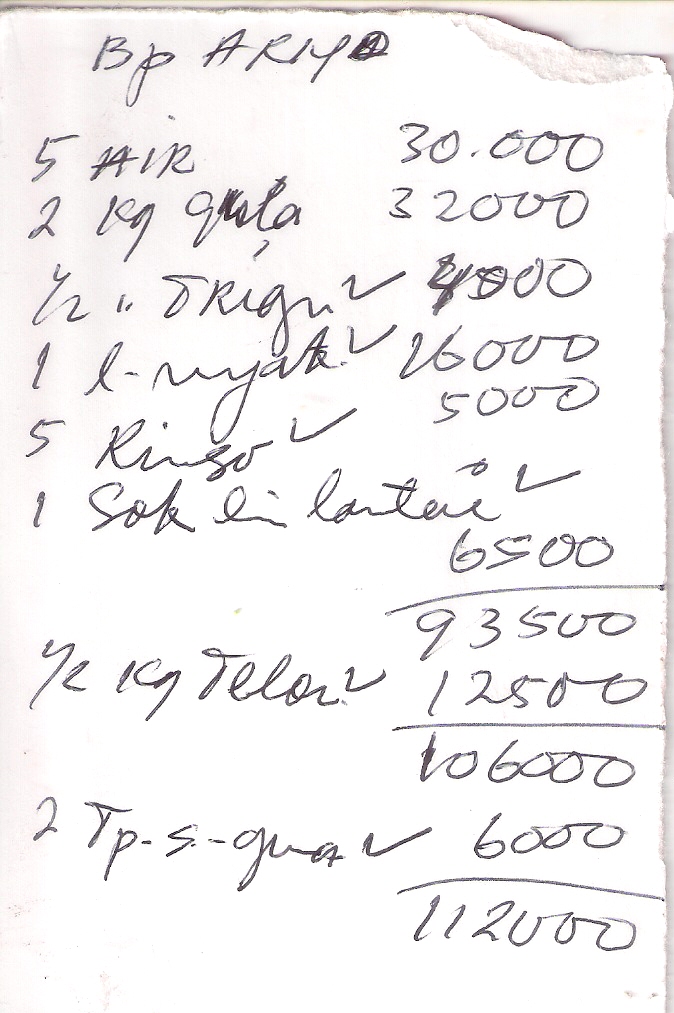 Bp ARIYO
5 AIR 30.000
2 Kg gula 32000
1/2 " TRigu ✓ 4000
1 l-nyak ✓ 16000
5 Rinso ✓ 5000
1 Sok lin lantai ✓
6500
93500
1/2 Kg Telor ✓ 12500
106000
2 Tp-s-guna ✓ 6000
112000